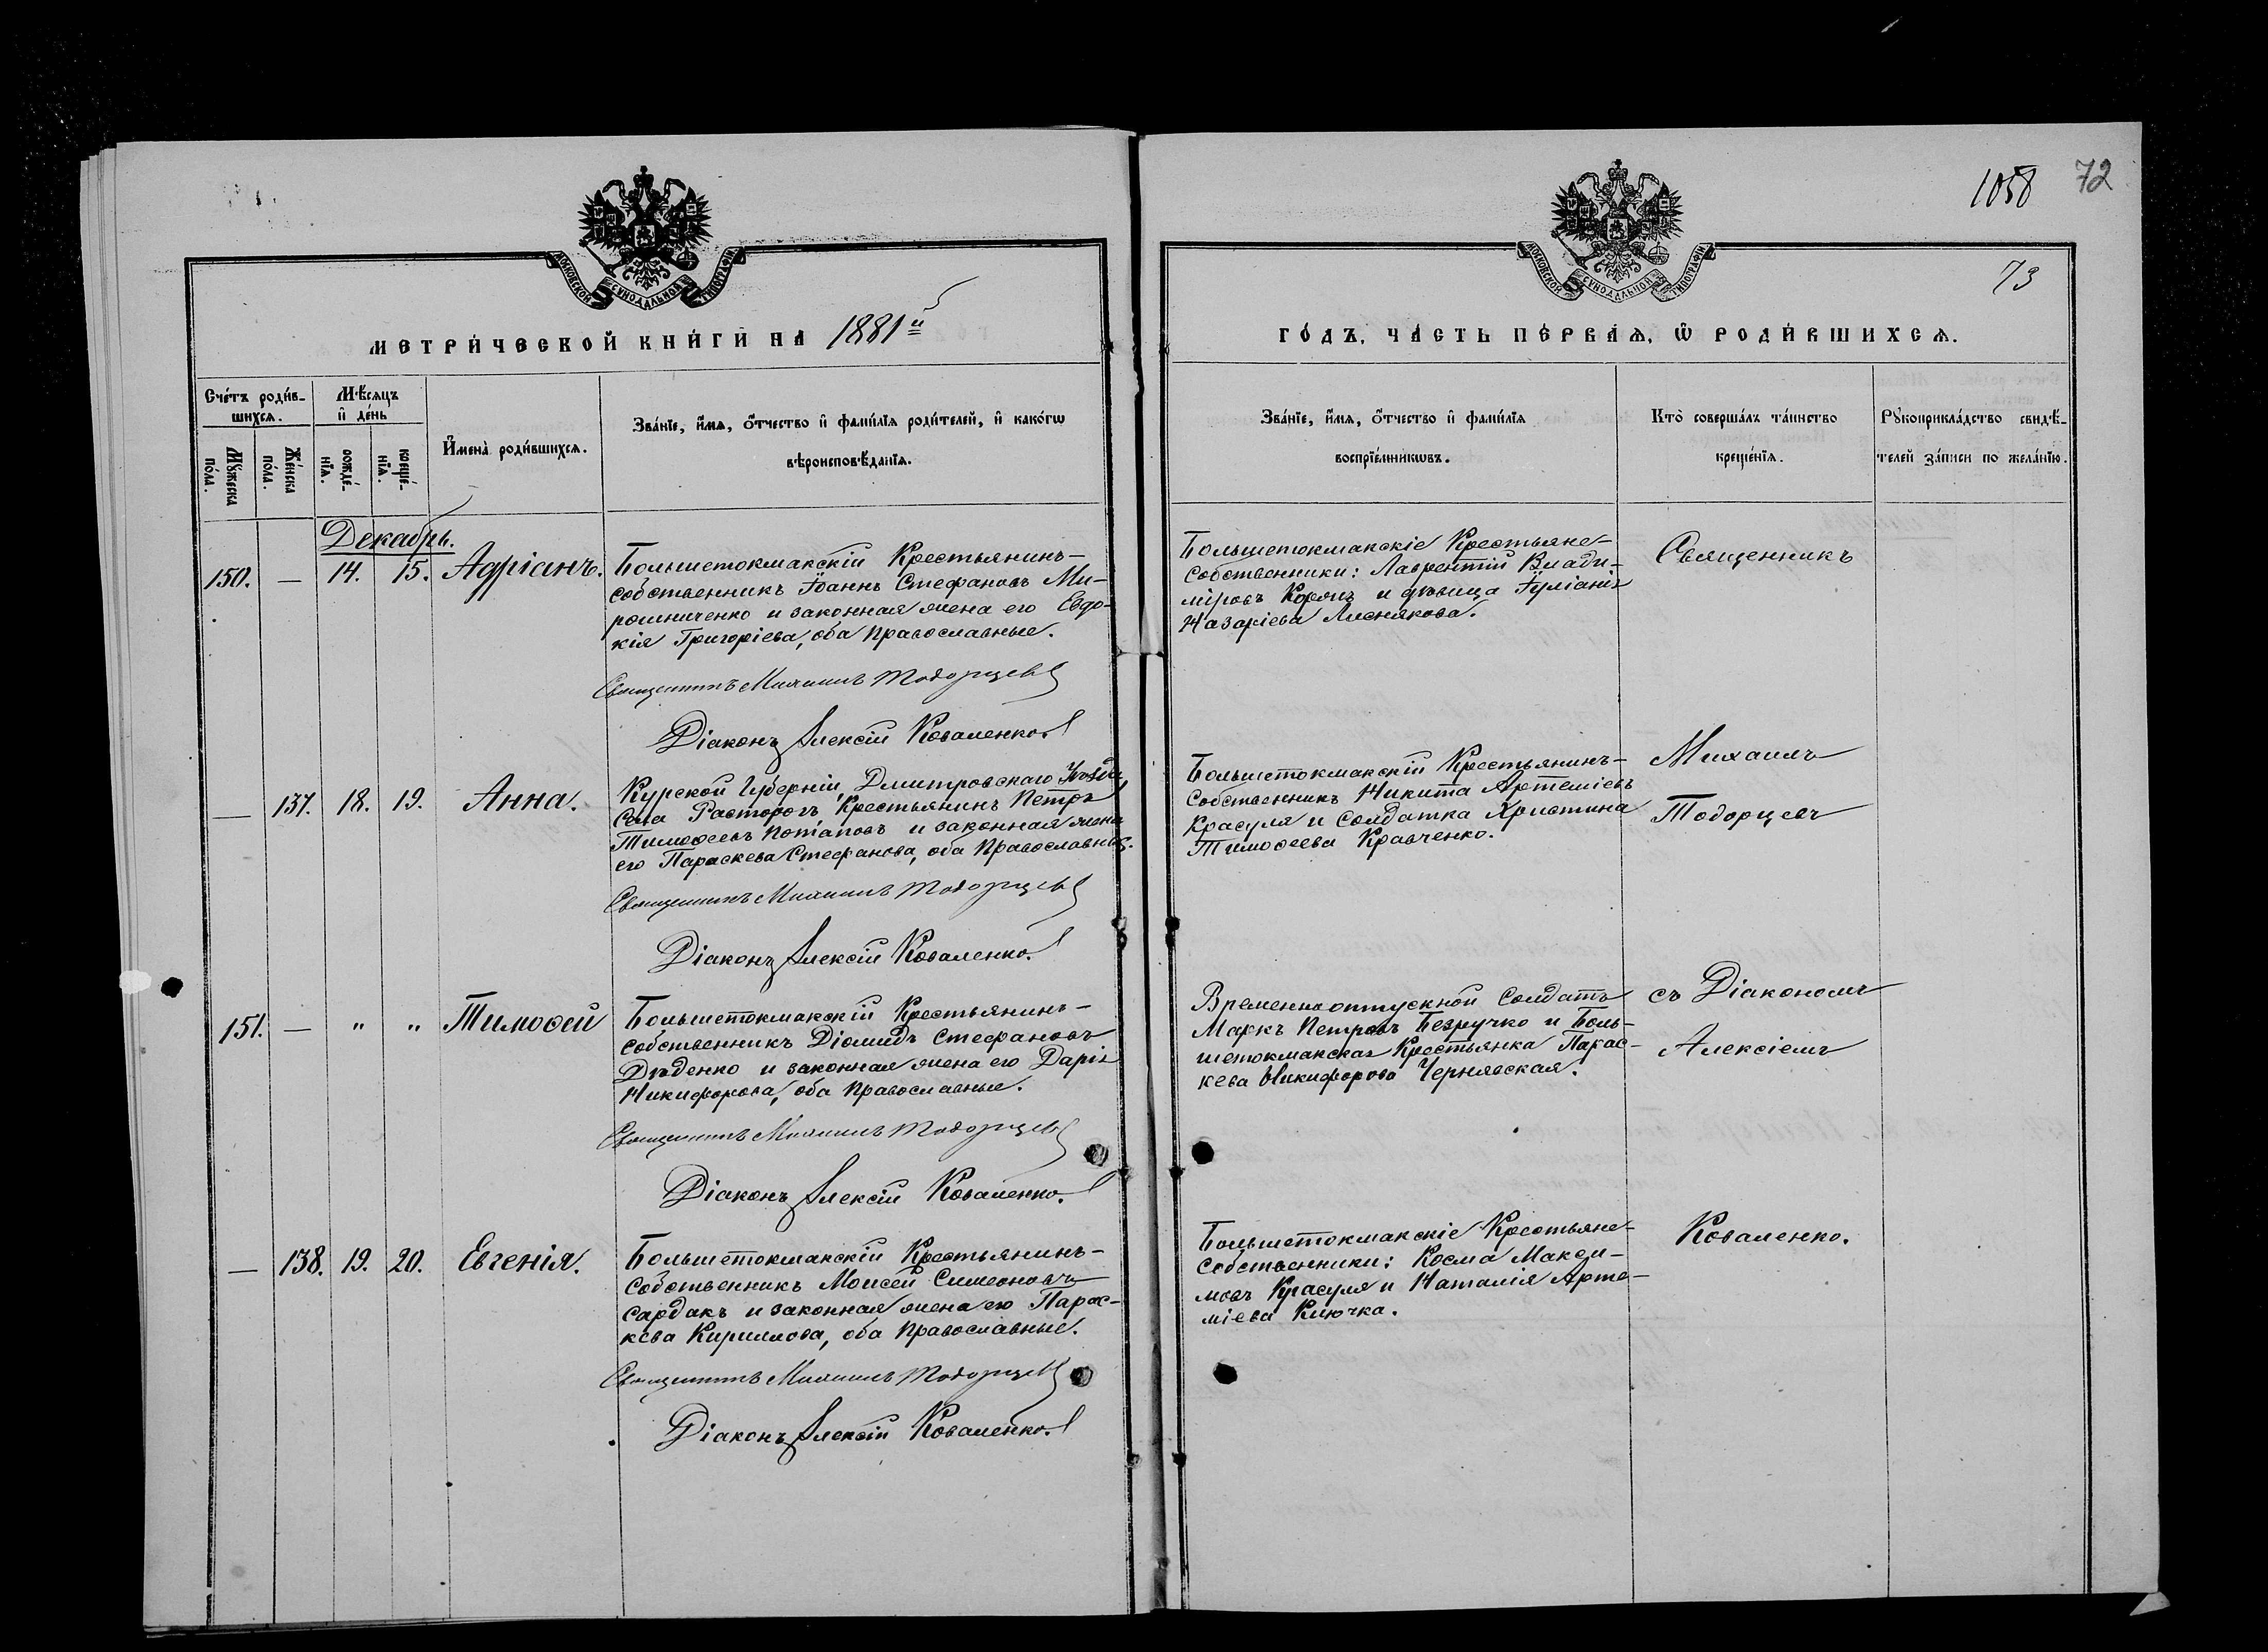 1058 72
73
МОСКОВСКОЙ СѴНОДАЛЬНОЙ ТИПОГРАФІИ
МОСКОВСКОЙ СѴНОДАЛЬНОЙ ТИПОГРАФІИ
МЕТРИ́ЧЕСКОЙ КНИ́ГИ НА 1881й
ГО́ДЪ, ЧА́СТЬ ПЕ́РВАѦ, Ѿ РОДИ́ВШИХСѦ.
Сче́тъ роди́в-
шихсѧ.
Мꙋ́жеска
по́ла.
Же́нска
по́ла.
Мѣ́сяцъ
и҆ де́нь
рожде́-
нїѧ.
креще́-
нїѧ.
И҆мена̀ роди́вшихсѧ.
Зва́нїе, и҆́мѧ, ѻ҆́тчество и҆ фами́лїѧ роди́телей, и҆ како́гѡ
вѣроисповѣ́данїѧ.
Зва́нїе, и҆́мѧ, ѻ҆́тчество и҆ фами́лїѧ
воспрїе́мникѡвъ.
Кто̀ соверша́лъ та́инство
креще́нїѧ.
Рꙋкоприкла́дство свидѣ́-
телей за́писи по жела́нїю.
Декабрь.
150. — 14. 15. Адріанъ.
Большетокмакскій Крестьянинъ-
собственникъ Іоаннъ Стефановъ Ми-
рошниченко и законная жена его Евдо-
кія Григоріева, оба православные.
Священникъ Михаилъ Тодорцевъ
Діаконъ Алексій Коваленко.
Большетокмакскіе Крестьяне-
собственники: Лаврентій Влади-
міровъ Корякъ и дѣвица Іуліанія
Назаріева Лиснякова.
Священникъ
— 137. 18. 19. Анна.
Курской Губерніи, Дмитровскаго Уѣзда,
села Расторогъ, Крестьянинъ Петръ
Тимоѳеевъ Потаповъ и законная жена
его Параскева Стефанова, оба православные.
Священникъ Михаилъ Тодорцевъ
Діаконъ Алексій Коваленко.
Большетокмакскій Крестьянинъ-
собственникъ Никита Артеміевъ
Красуля и солдатка Христина
Тимоѳеева Кравченко.
Михаилъ
Тодорцевъ
151. — " " Тимоѳей
Большетокмакскій Крестьянинъ-
собственникъ Діомидъ Стефановъ
Дѣденко и законная жена его Дарія
Никифорова, оба православные.
Священникъ Михаилъ Тодорцевъ
Діаконъ Алексій Коваленко.
Временноотпускной Солдатъ
Маркъ Петровъ Безручко и Боль-
шетокмакская Крестьянка Парас-
кева Никифорова Чернявская.
съ Діакономъ
Алексіемъ
— 138. 19. 20. Евгенія.
Большетокмакскій Крестьянинъ-
собственникъ Моисей Симеоновъ
Сардакъ и законная жена его Парас-
кева Кириллова, оба православные.
Священникъ Михаилъ Тодорцевъ
Діаконъ Алексій Коваленко.
Большетокмакскіе Крестьяне-
собственники: Косма Макси-
мовъ Красуля и Наталія Арте-
міева Ключка.
Коваленко.